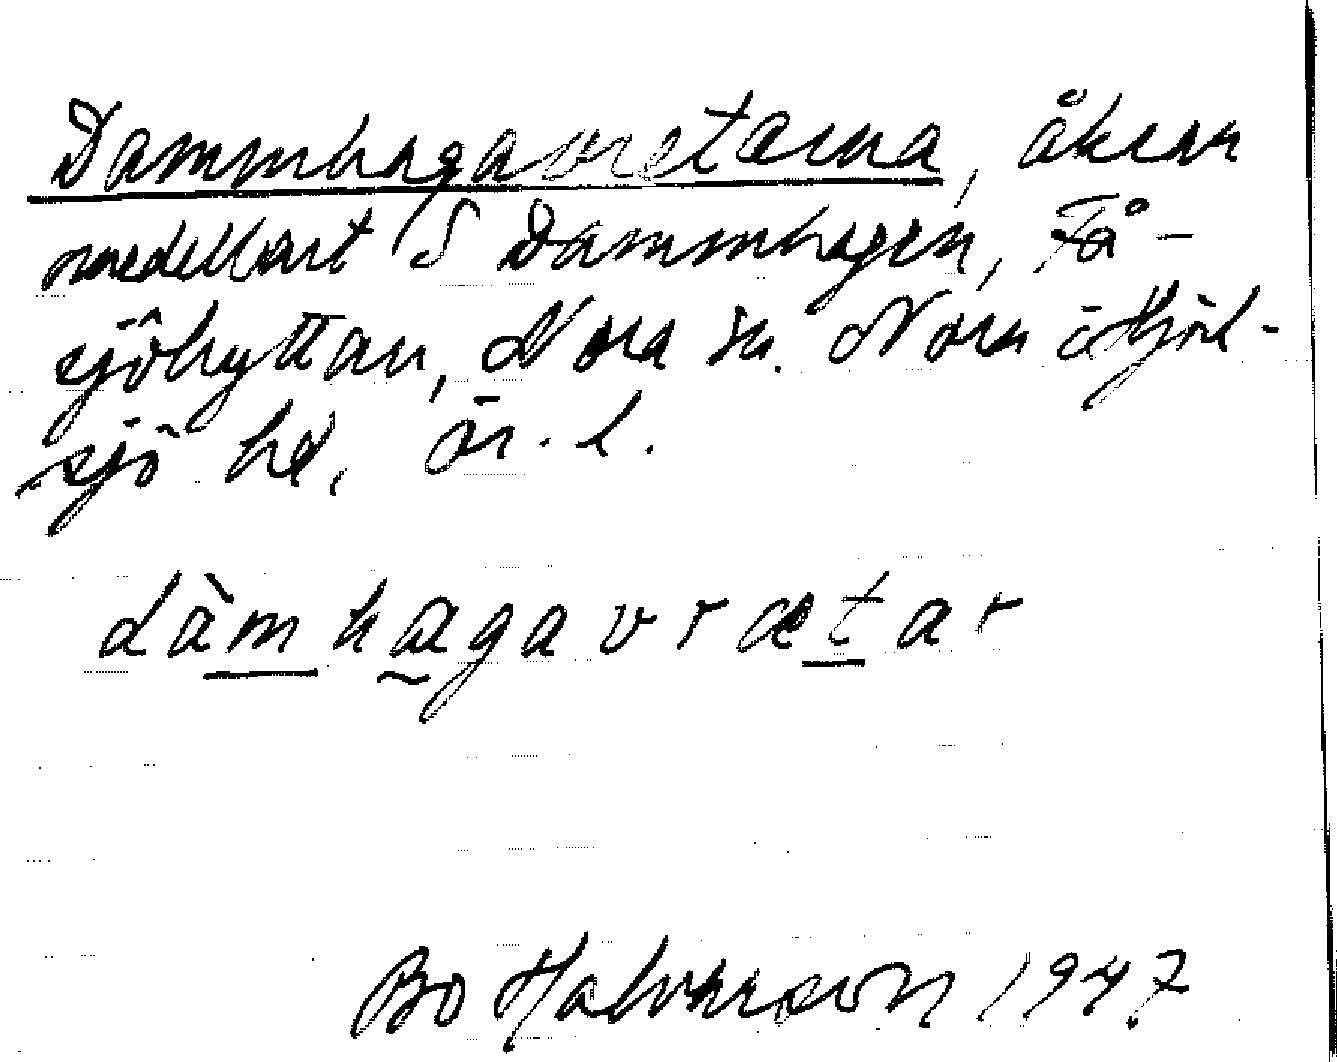 Dammhagavretarna, åkrar
omedelbart S Dammhagen, Få-
sjöhyttan, Nora sn. Nora o Hjul-
sjö hd, Ör. l.
dàmhagavrætar
Bo Halvarson 1947